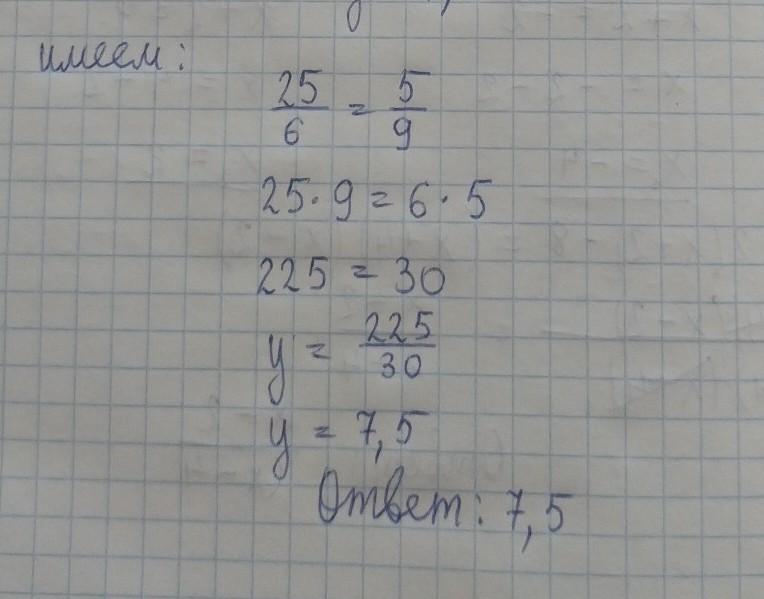 имеем:
25/6 = 5/9
25·9 = 6·5
225 = 30
y = 225/30
y = 7,5
Ответ: 7,5